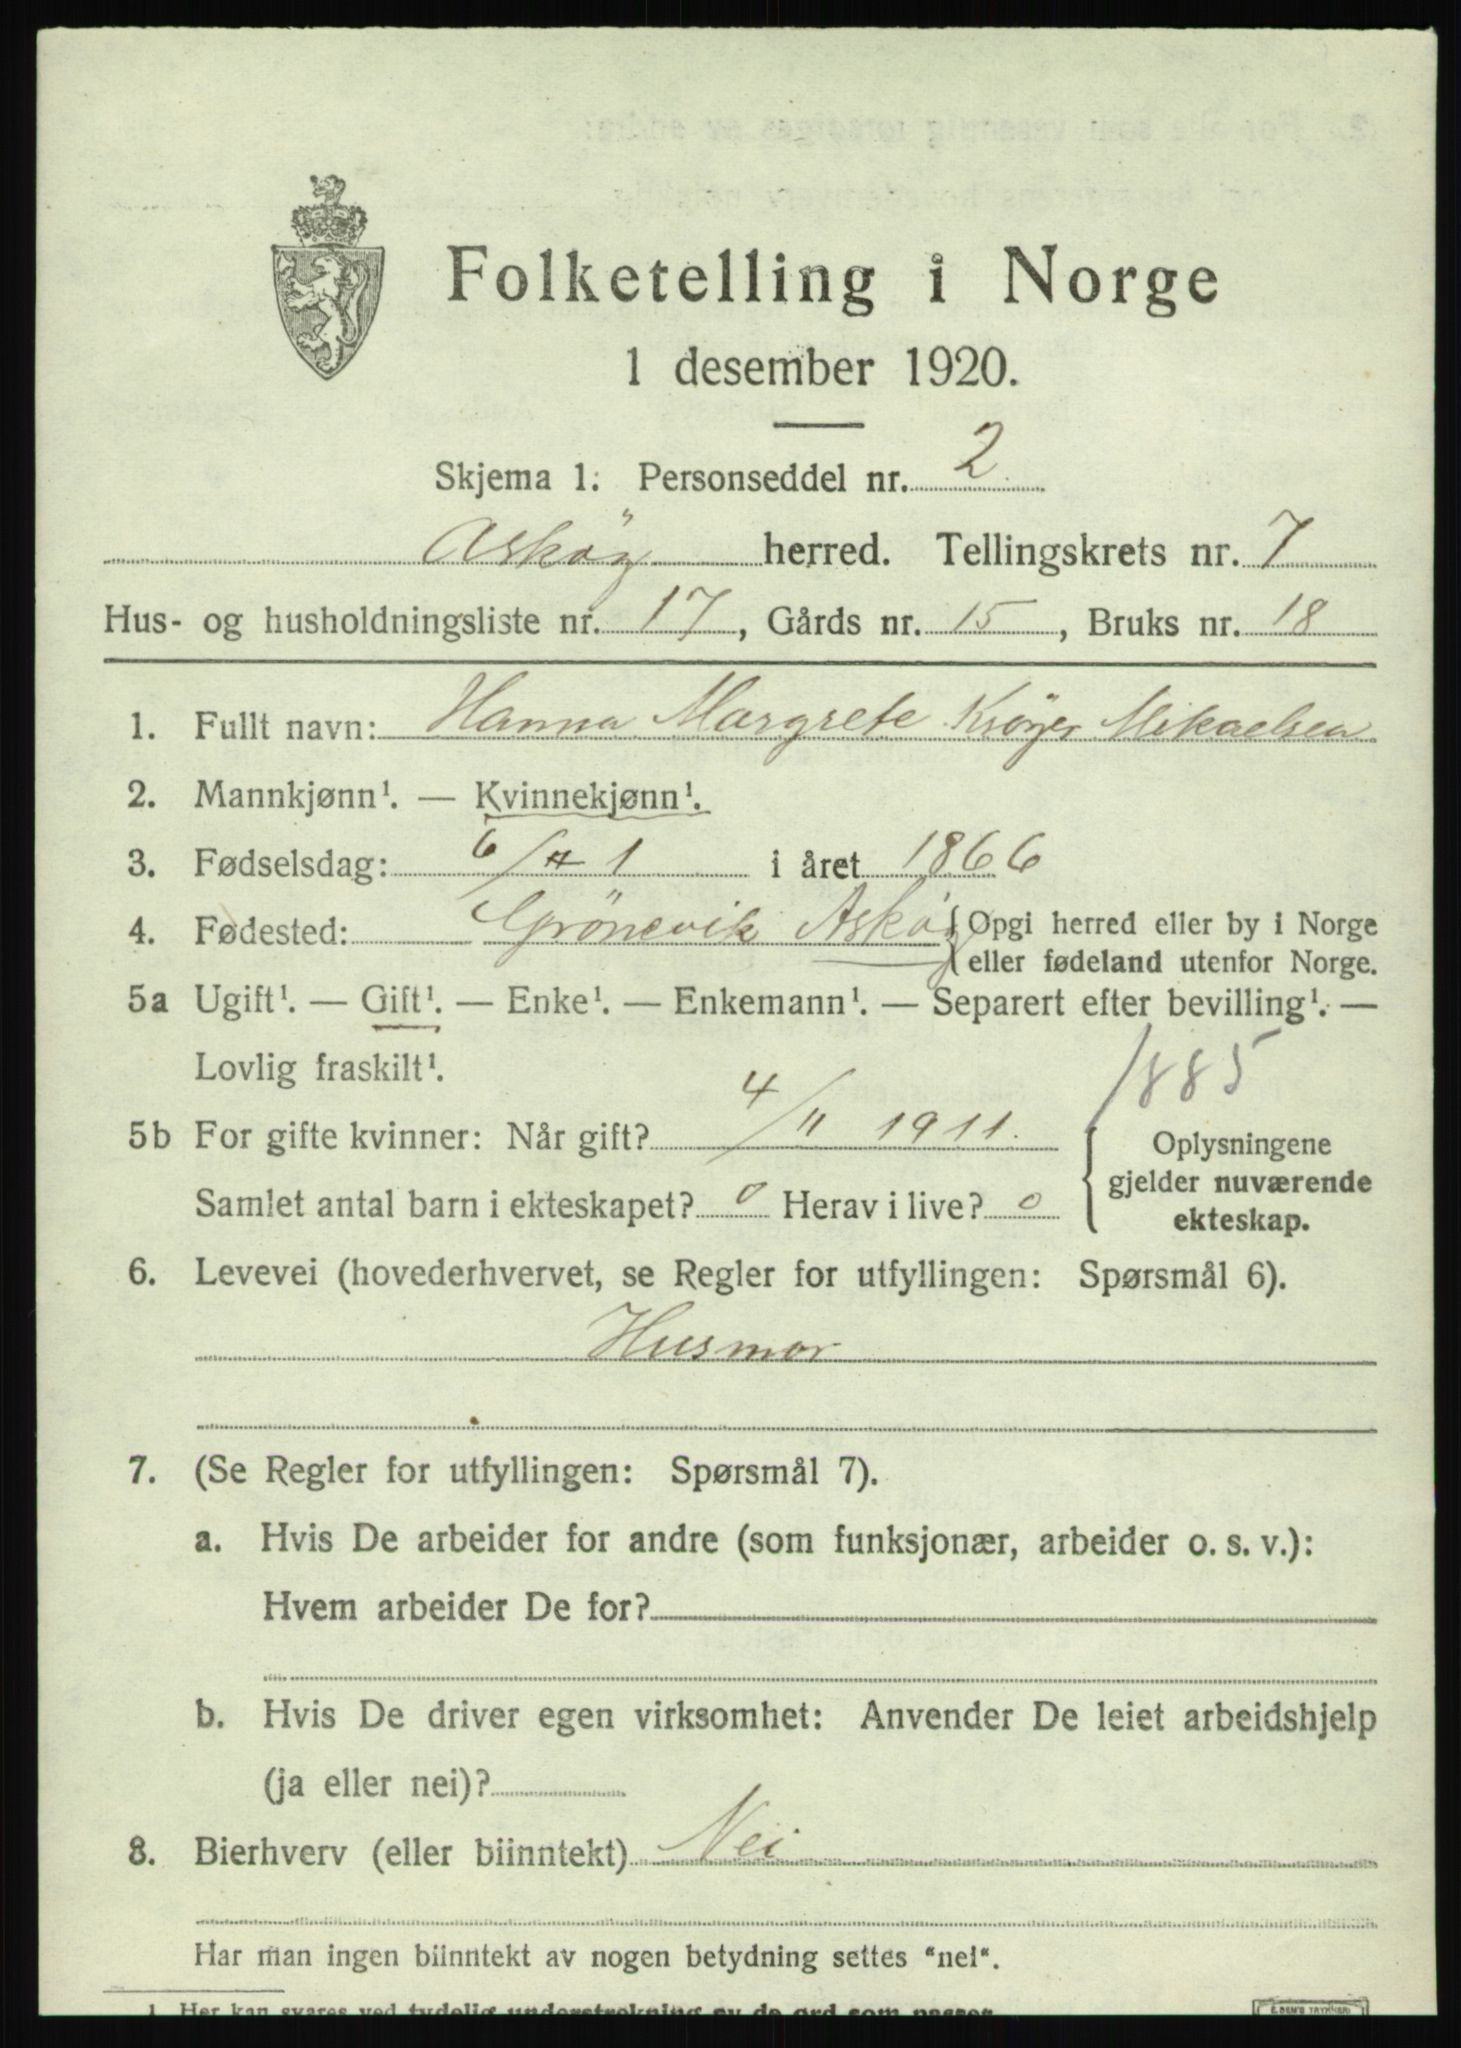 Folketelling i Norge
1 desember 1920.
Skjema 1. Personseddel nr. 2
Askøy herred. Tellingskrets nr. 7
Hus- og husholdningsliste nr. 17, Gårds nr. 15, Bruks nr. 18
1. Fullt navn: Hanna Margrete Krøyer Mikaelsen
2. Mannkjønn¹. — Kvinnekjønn¹.
3. Fødselsdag: 6/1 i året 1866
4. Fødested: Grönevik Askøy { Opgi herred eller by i Norge
eller fødeland utenfor Norge.
5a Ugift¹. — Gift¹. — Enke¹. — Enkemann¹. — Separert efter bevilling¹. —
Lovlig fraskilt¹.
1885
5b For gifte kvinner: Når gift? 4/11 1911.
Samlet antal barn i ekteskapet? 0 Herav i live? 0
{ Oplysningene
gjelder nuværende
ekteskap.
6. Levevei (hovederhvervet, se Regler for utfyllingen: Spørsmål 6).
Husmor
7. (Se Regler for utfyllingen: Spørsmål 7).
a. Hvis De arbeider for andre (som funksjonær, arbeider o. s. v.):
Hvem arbeider De for?
b. Hvis De driver egen virksomhet: Anvender De leiet arbeidshjelp
(ja eller nei)?
8. Bierhverv (eller biinntekt) Nei
Har man ingen biinntekt av nogen betydning settes "nei".
1 Her kan svares ved tydelig understrekning av de ord som passer